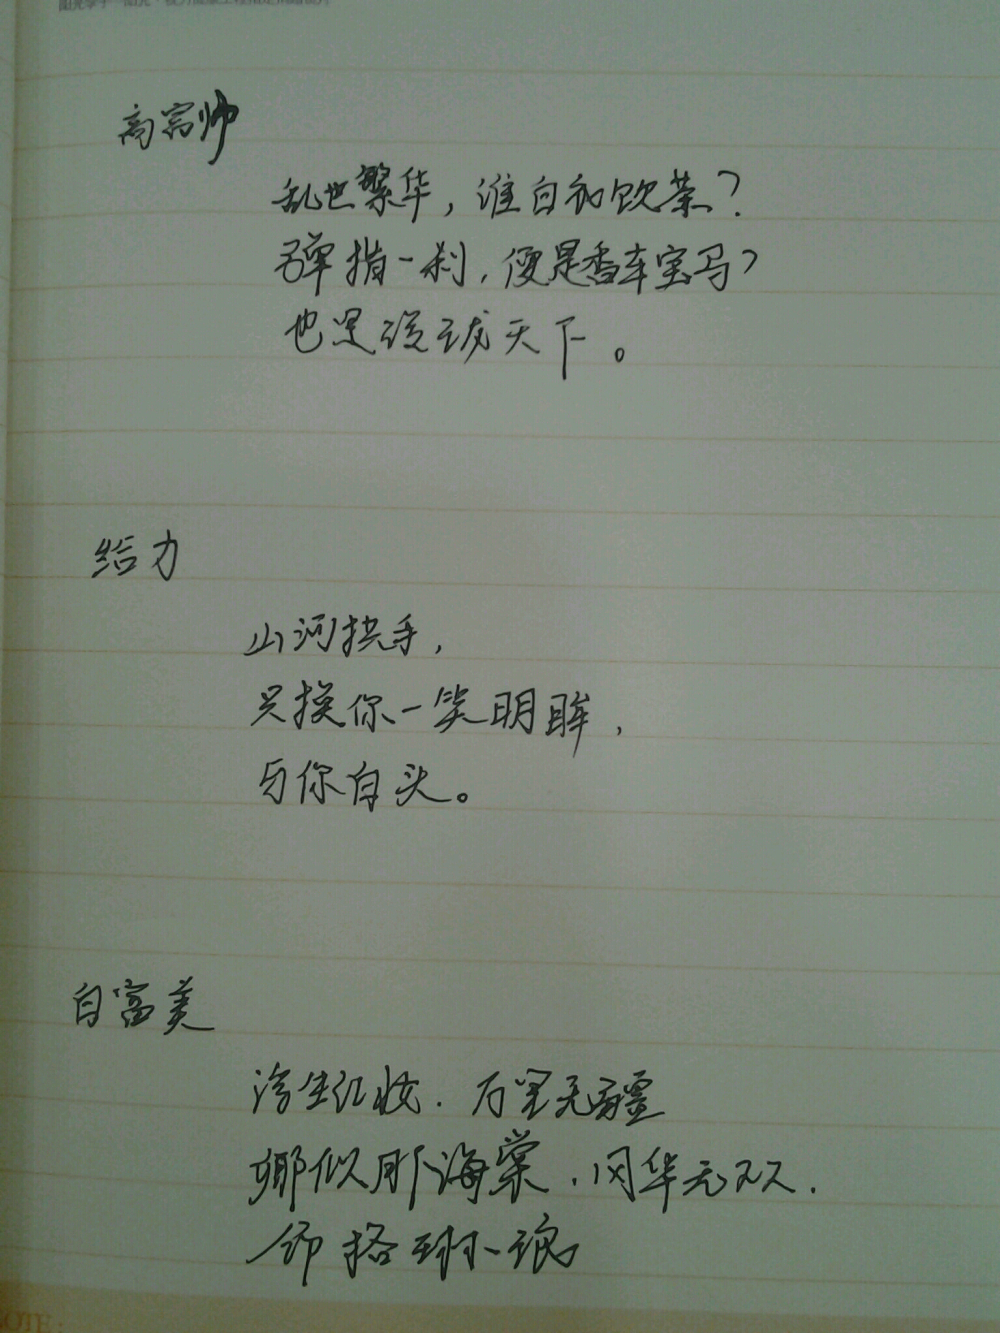 高富帅
乱世繁华，谁自知饮茶？
弹指一刹，便是香车宝马？
也是没谈天下。
给力
山河拱手，
只换你一笑明眸，
与你白头。
白富美
浮生红妆．万里无疆
娜似那海棠．风华无双．
OTE: